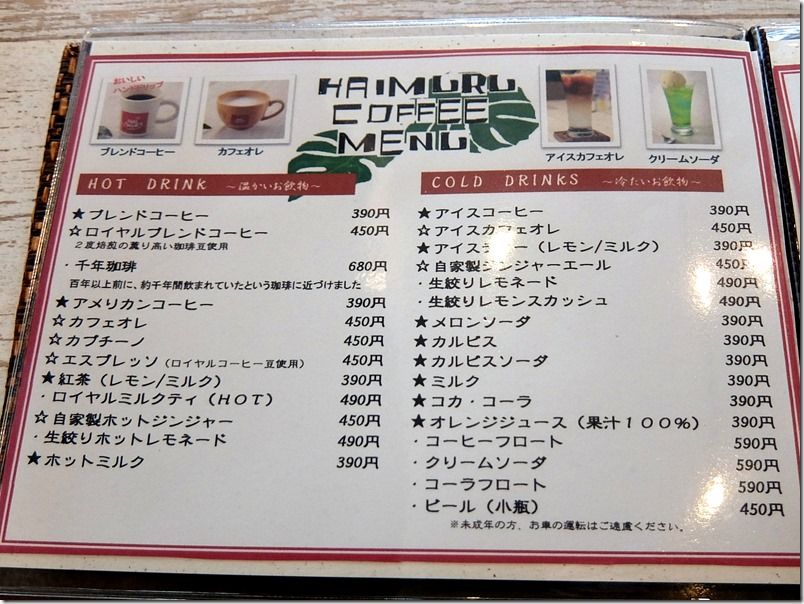 おいしい
ハンドドリップ
HAIMURU
COFFEE
MENU
ブレンドコーヒー
カフェオレ
アイスカフェオレ
クリームソーダ
HOT DRINK ～温かいお飲物～
★ブレンドコーヒー 390円
☆ロイヤルブレンドコーヒー 450円
２度焙煎の薫り高い珈琲豆使用
・千年珈琲 680円
百年以上前に、約千年間飲まれていたという珈琲に近づけました
★アメリカンコーヒー 390円
☆カフェオレ 450円
☆カプチーノ 450円
☆エスプレッソ（ロイヤルコーヒー豆使用） 450円
★紅茶（レモン/ミルク） 390円
・ロイヤルミルクティ（ＨＯＴ） 490円
☆自家製ホットジンジャー 450円
・生絞りホットレモネード 490円
★ホットミルク 390円
COLD DRINKS ～冷たいお飲物～
★アイスコーヒー 390円
☆アイスカフェオレ 450円
★アイスティー（レモン/ミルク） 390円
☆自家製ジンジャーエール 450円
・生絞りレモネード 490円
・生絞りレモンスカッシュ 490円
★メロンソーダ 390円
★カルピス 390円
★カルピスソーダ 390円
★ミルク 390円
★コカ・コーラ 390円
★オレンジジュース（果汁１００％） 390円
・コーヒーフロート 590円
・クリームソーダ 590円
・コーラフロート 590円
・ビール（小瓶） 450円
※未成年の方、お車の運転はご遠慮ください。